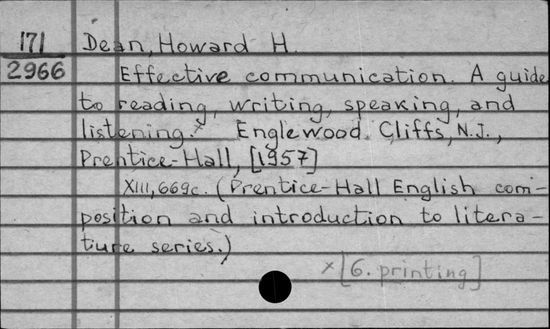 171 Dean, Howard H.
2966 Effective communication. A guide
to reading, writing, speaking, and
listening.x Englewood Cliffs, N.J.,
Prentice-Hall, [1957]
XIII, 669c. (Prentice-Hall English com-
position and introduction to litera-
ture series.)
x[6. printing]